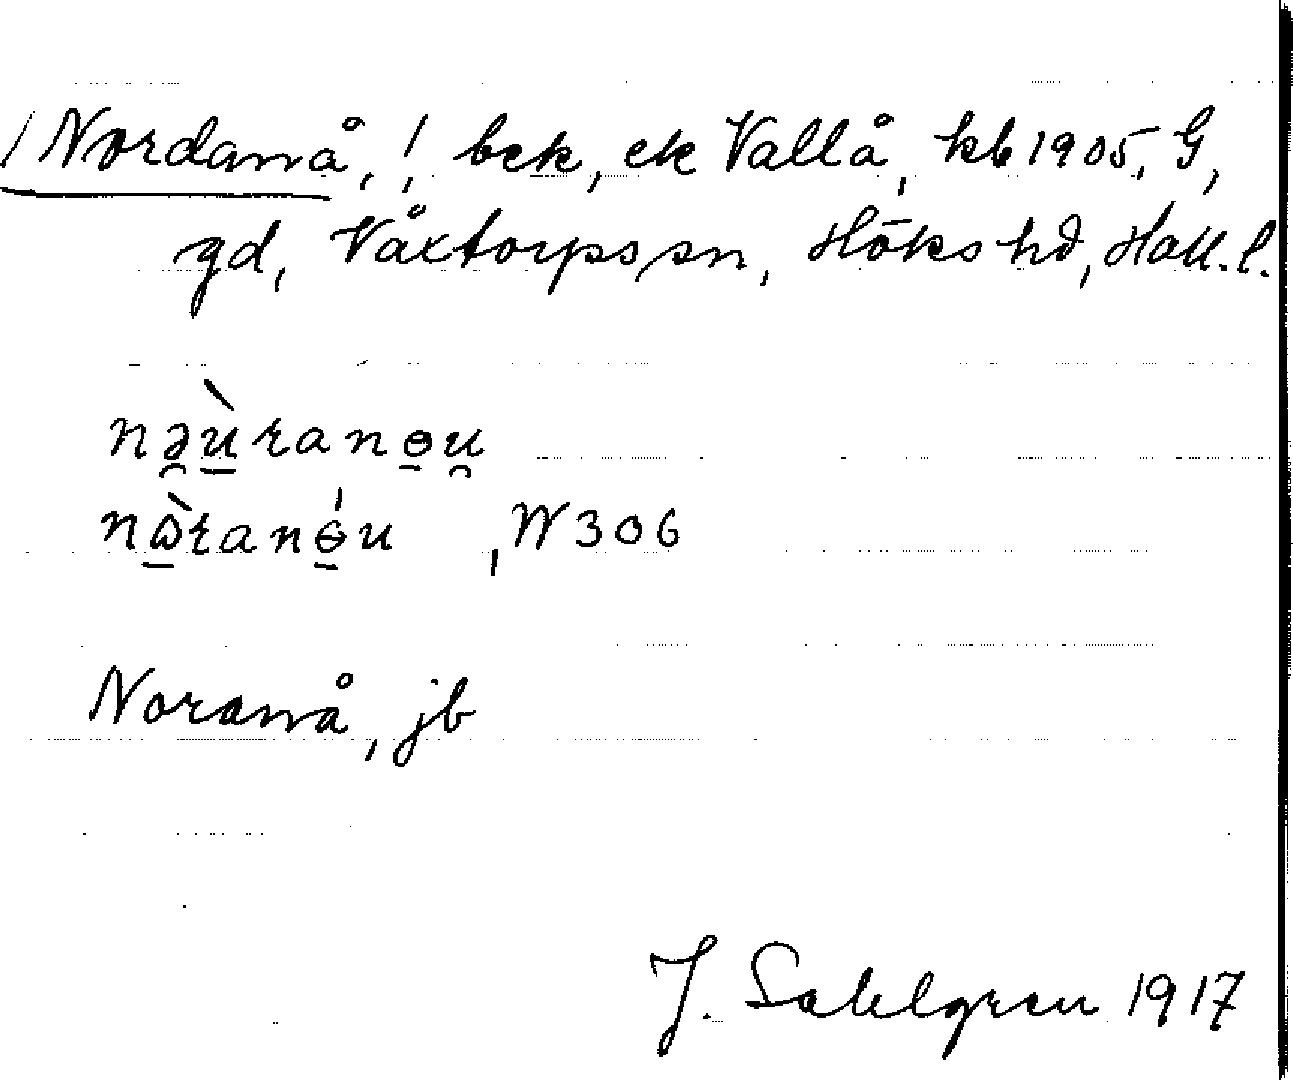 /Nordanå, ! bek, ek Vallå, kb 1905, G,
gd, Våxtorps sn, Höks hd, Hall. l.
nə̯ùranɵu̯
nɷ̀ranɵ́u , W 306
Noranå, jb
J. Sahlgren 1917